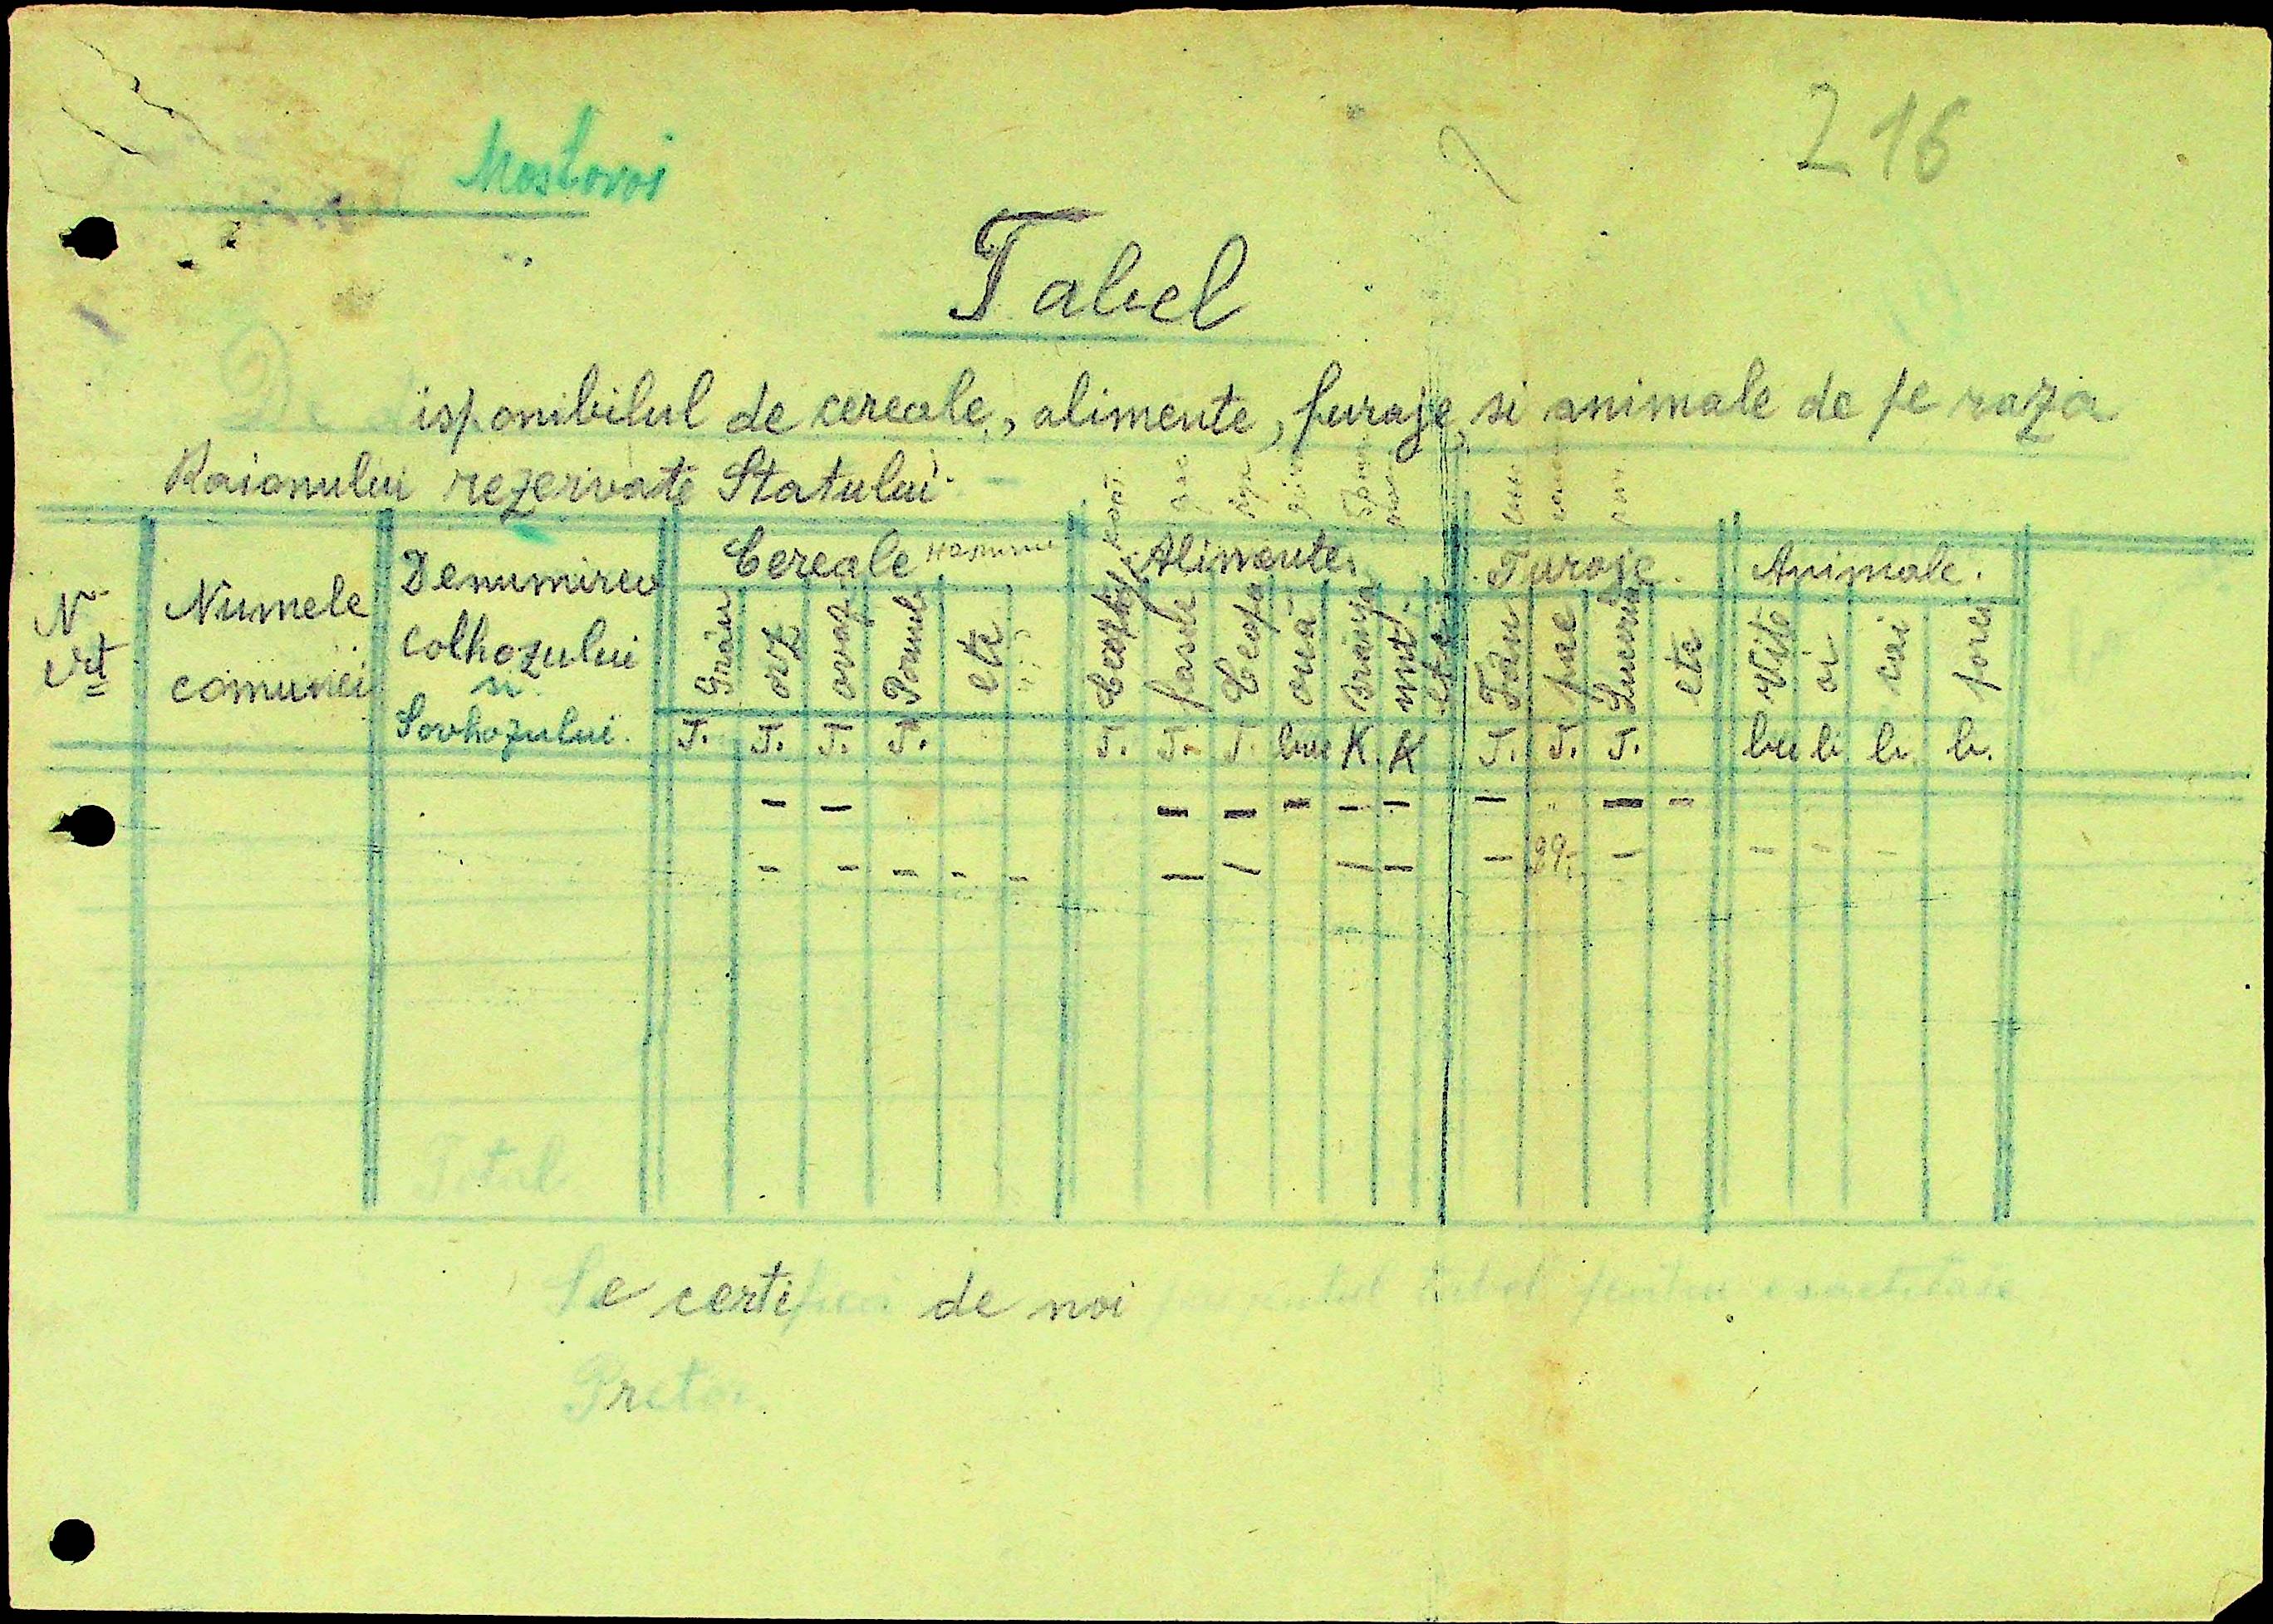 Mostovoi
216
Tabel
De disponibilul de cereale, alimente, furaje, si animale de pe raza
Raionului rezervate Statului
N Crt
Numele comunei
Denumirea colhozului si Sovhozului.
Cereale
Alimente.
Furaje.
Animale.
Grâu orz ovaz Porumb etc
Cartofi fasole Ceapa ouă Brânză unt etc
Fân pae etc
Vite oi cai porci
T. T. T. T. T. T. T. buc K. K T. T. T. bu b b. b.
– – – – – – – – – –
– – – – – – – – – – 29. – – – –
Total
Se certifica de noi tabel pentru exactitate
Pretor